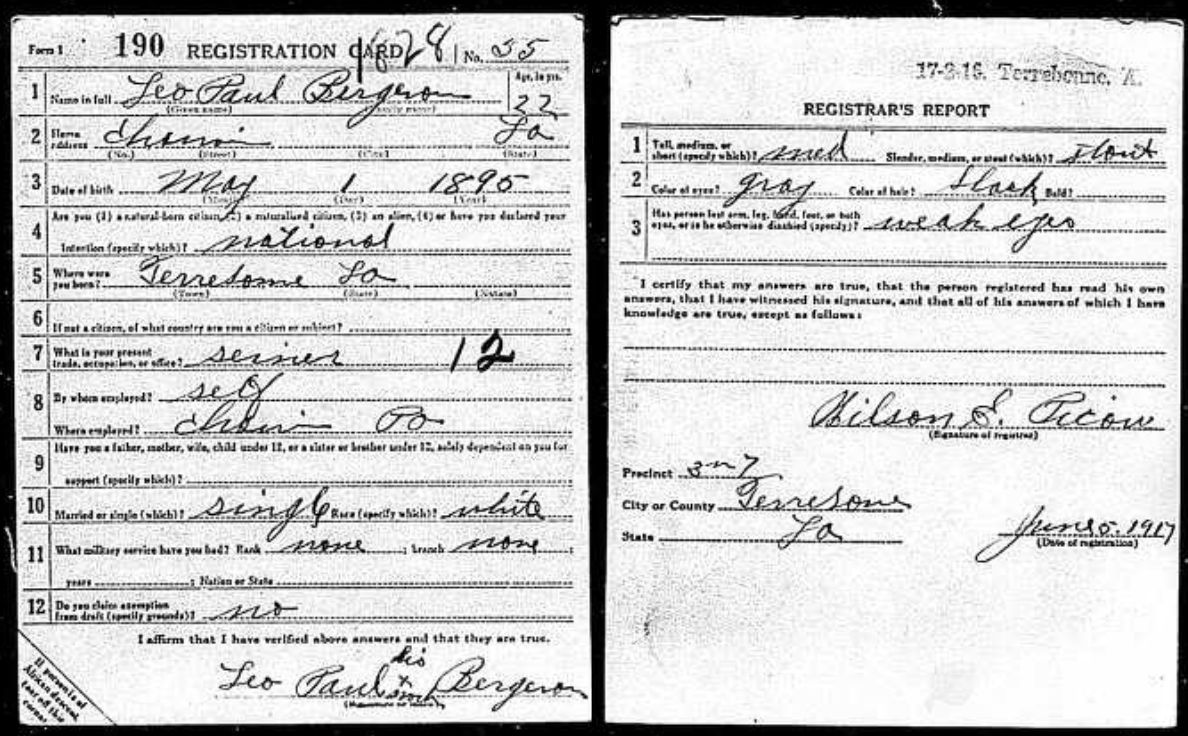 Form 1 190 REGISTRATION CARD 1828 No. 55
1 Name in full Leo Paul Bergeron Age, in yrs. 22
(Given name) (Family name)
2 Home address La
(No.) (Street) (City) (State)
3 Date of birth May 1 1895
(Month) (Day) (Year)
4 Are you (1) a natural-born citizen, (2) a naturalized citizen, (3) an alien, (4) or have you declared your
intention (specify which)? national
5 Where were you born? Terrebonne La
(Town) (State) (Nation)
6 If not a citizen, of what country are you a citizen or subject?
7 What is your present trade, occupation, or office? seiner 12
8 By whom employed? self
Where employed?
9 Have you a father, mother, wife, child under 12, or a sister or brother under 12, solely dependent on you for
support (specify which)?
10 Married or single (which)? single Race (specify which)? white
11 What military service have you had? Rank none ; branch none ;
years ; Nation or State
12 Do you claim exemption from draft (specify grounds)? no
I affirm that I have verified above answers and that they are true.
his
Leo Paul x Bergeron
mark
(Signature or mark)
If person is of African descent, tear off this corner
17-3-16. Terrebonne, A.
REGISTRAR'S REPORT
1 Tall, medium, or short (specify which)? med Slender, medium, or stout (which)? stout
2 Color of eyes? gray Color of hair? black Bald?
3 Has person lost arm, leg, hand, foot, or both eyes, or is he otherwise disabled (specify)? weak eyes
I certify that my answers are true, that the person registered has read his own
answers, that I have witnessed his signature, and that all of his answers of which I have
knowledge are true, except as follows:
Wilson E. Picou
(Signature of registrar)
Precinct 3rd 7
City or County Terrebonne
State La June 5. 1917
(Date of registration)